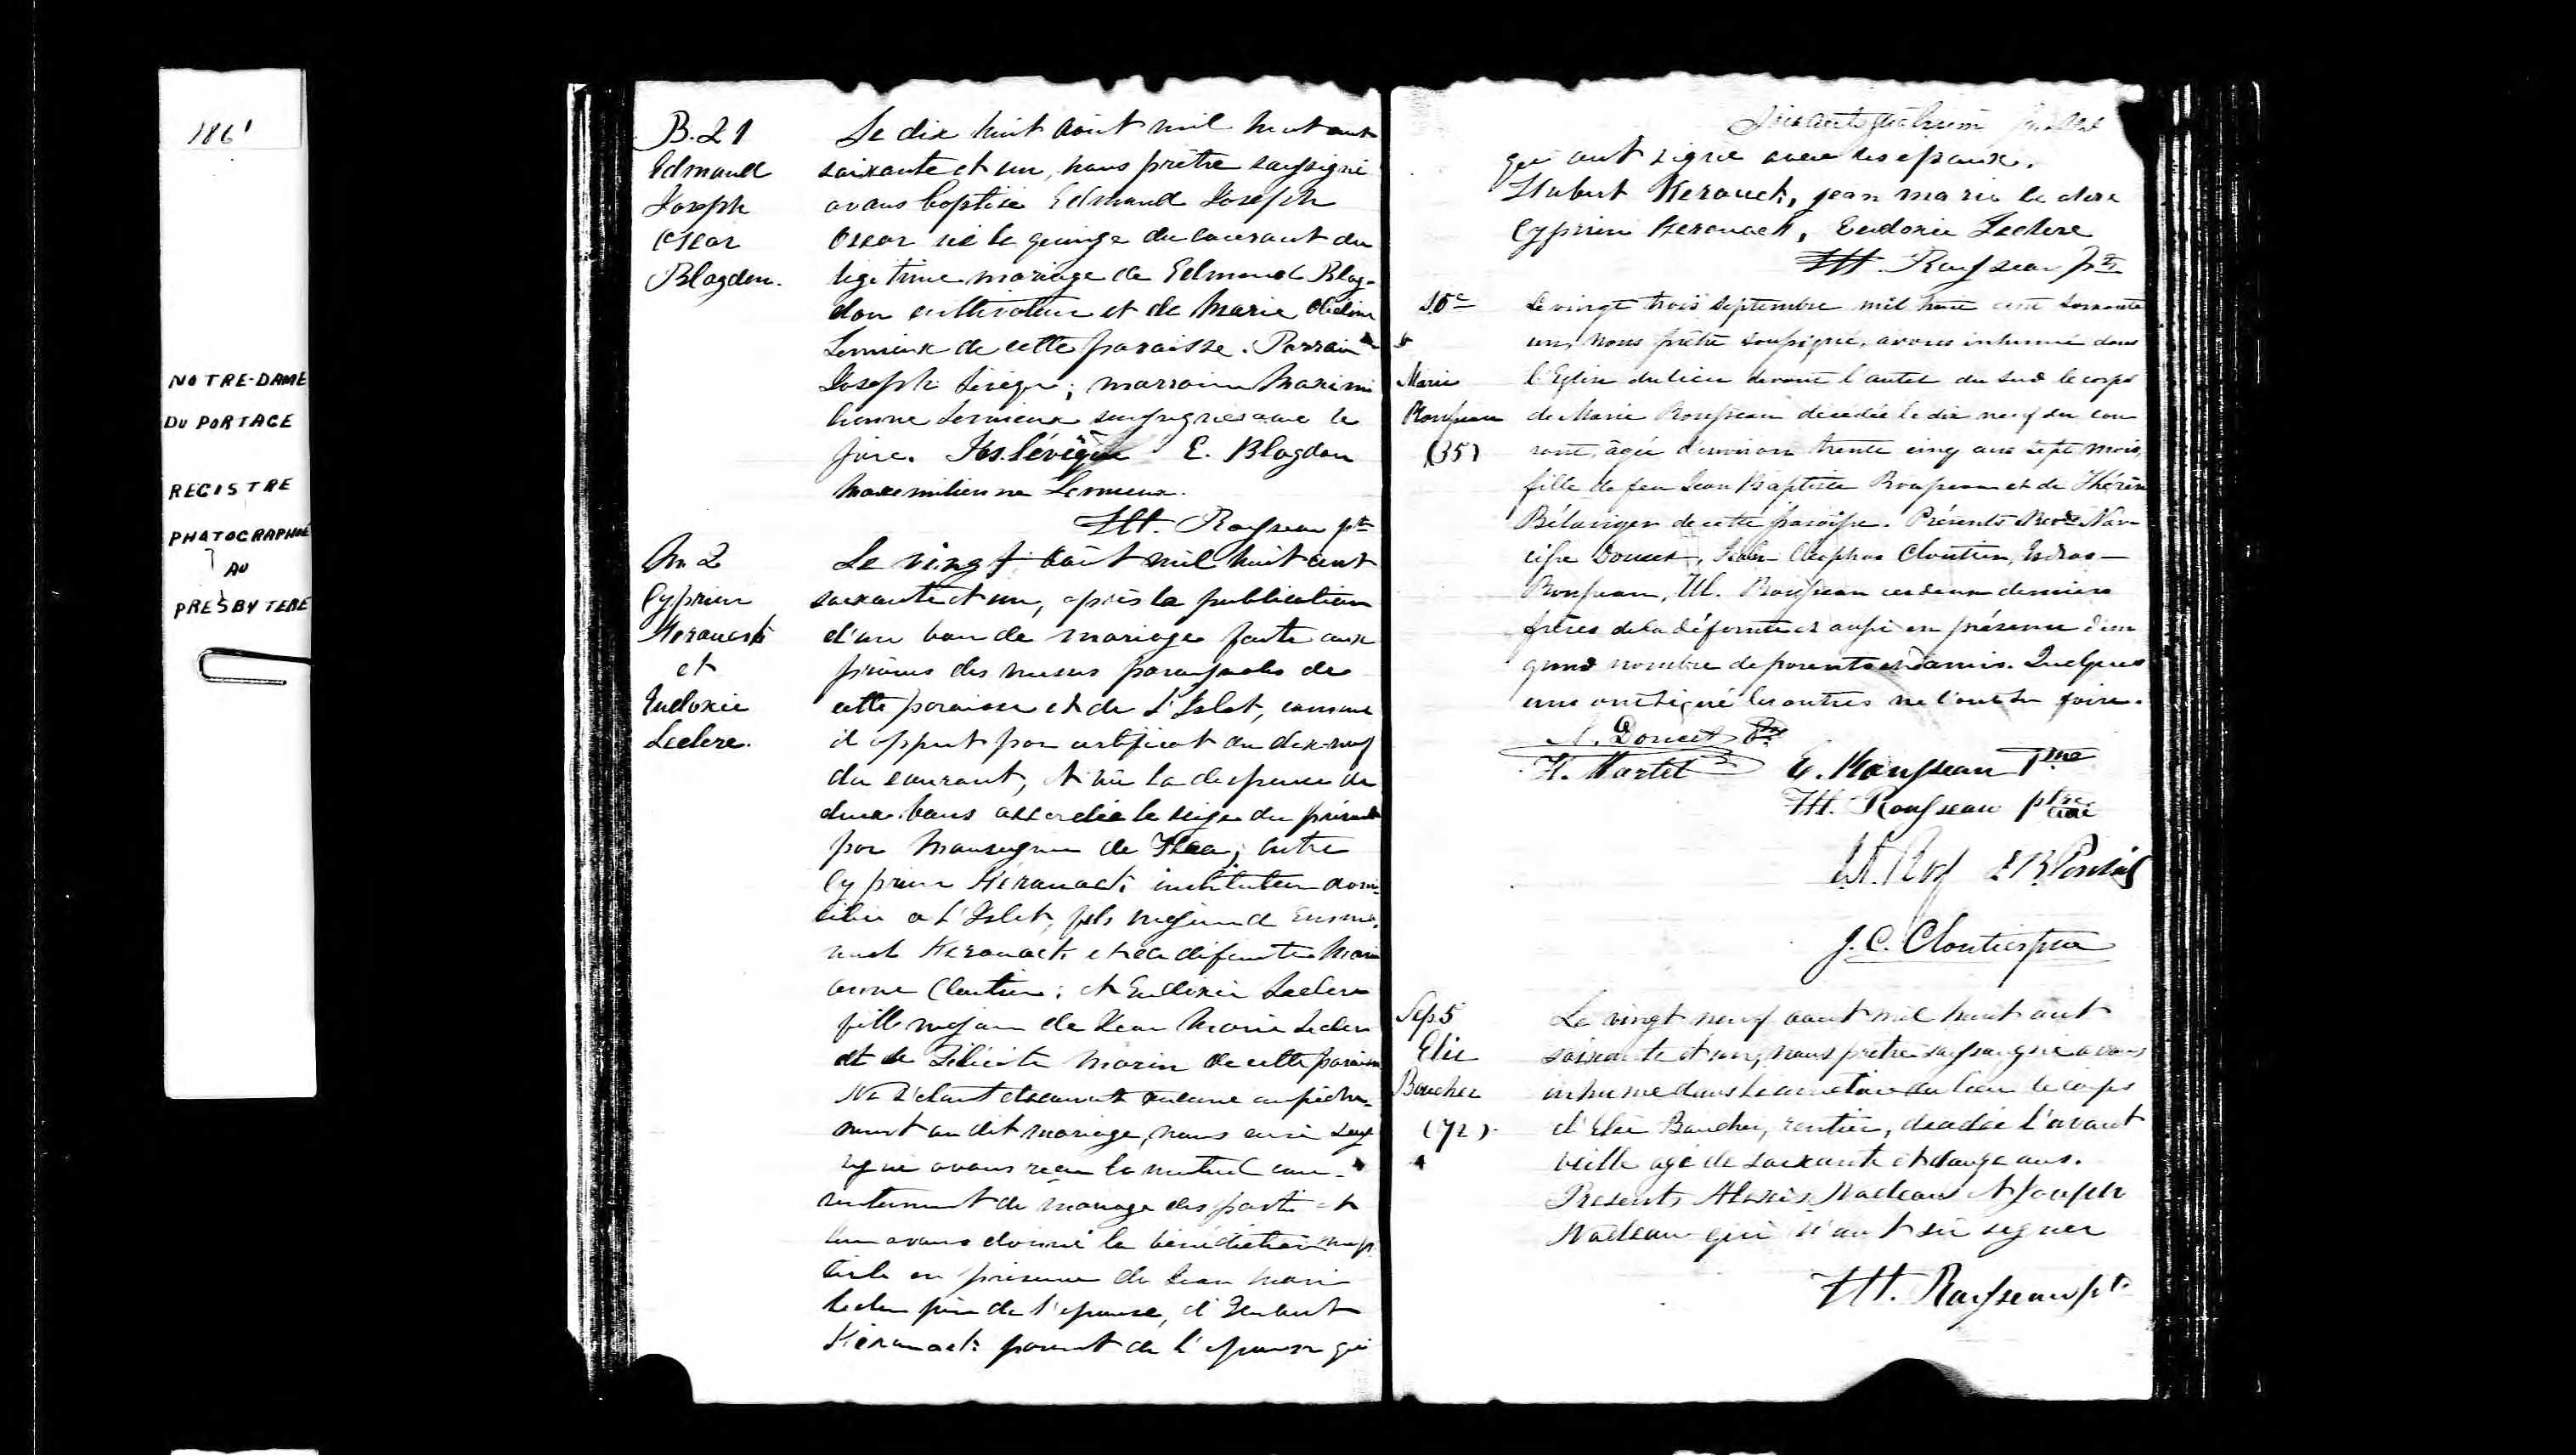 1861
NOTRE-DAME
DU PORTAGE
REGISTRE
PHATOGRAPHIÉ
AU
PRESBYTERE
B. 21
Edmund
Joseph
Oscar
Blagdon.
Le dix huit août mil huit cent
soixante et un, nous prêtre soussigné
avons baptisé Edmund Joseph
Oscar né le quinze du courant du
légitime mariage de Edmund Blag-
don cultivateur et de Marie
Lemieux de cette paroisse. Parrain
Joseph Lévêque; marraine Maximi
lienne Lemieux soussignés avec le
père. Jos. Lévêque E. Blagdon
Maximilienne Lemieux.
Ht. Rousseau ptre
M. 2
Cyprien
Kerouack
et
Eudoxie
Leclerc.
Le vingt août mil huit cent
soixante et un, après la publication
d'un ban de mariage faite aux
prônes des messes paroissiales de
cette paroisse et de L'Islet, comme
il appert par certificat du dix-neuf
du courant, et vu la dispense de
deux bans accordée le seize du présent
par Monseigneur de Tloa; entre
Cyprien Kérouack instituteur domi-
cilié à L'Islet, fils majeur d'
Kerouack et de défunte Marie
anne Cloutier; et Eudoxie Leclerc
fille majeure de Jean Marie Leclerc
et de Félicité Morin de cette paroisse
Ne s'étant découvert aucun empêche-
ment au dit mariage, nous curé sous
signé avons reçu le mutuel con-
sentement de mariage des parties et
leur avons donné la bénédiction nup
tiale en présence de Jean Marie
Leclerc père de l'épouse, d'Hubert
Kérouack parent de l'époux qui
qui ont signé avec les époux.
Hubert Kerouack, jean marie le clerc
Cyprien Kerouack, Eudoxie Leclerc
Ht. Rousseau ptre
S.
Marie
Rousseau
(35)
Le vingt trois septembre mil huit cent soixante
un, nous prêtre soussigné, avons inhumé dans
l'Eglise du lieu devant l'autel du sud le corps
de Marie Rousseau décédée le dix neuf du cou
rant, âgée d'environ trente cinq ans sept mois,
fille de feu Jean Baptiste Rousseau et de Thérèse
Bélanger de cette paroisse. Présents Nar-
cisse Doucet, Jean Cléophas Cloutier,
Rousseau, Ht. Rousseau ces deux derniers
frères de la défunte et aussi en présence d'un
grand nombre de parents et d'amis. Quelques
uns ont signé les autres ne l'ont su faire.
N. Doucet Ptre
H. Martel E. Rousseau
Ht. Rousseau ptre curé
J. C. Cloutier ptre
Sep. 5
Elie
Boucher
(72)
Le vingt neuf août mil huit cent
soixante et un, nous prêtre soussigné avons
inhumé dans le cimetière du lieu le corps
d'Elie Boucher, rentier, décédé l'avant
veille âgé de soixante et douze ans.
Présents Alexis Nadeau et Joseph
Nadeau qui n'ont su signer
Ht. Rousseau ptre